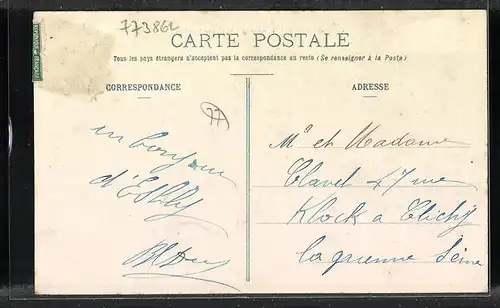 773862
CARTE POSTALE
Tous les pays étrangers n'acceptent pas la correspondance au recto (Se renseigner à la Poste)
CORRESPONDANCE
ADRESSE
77
un bonjour
d'Esbly
Mr et Madame
Clavel 47 rue
Klock a Clichy
la garenne Seine